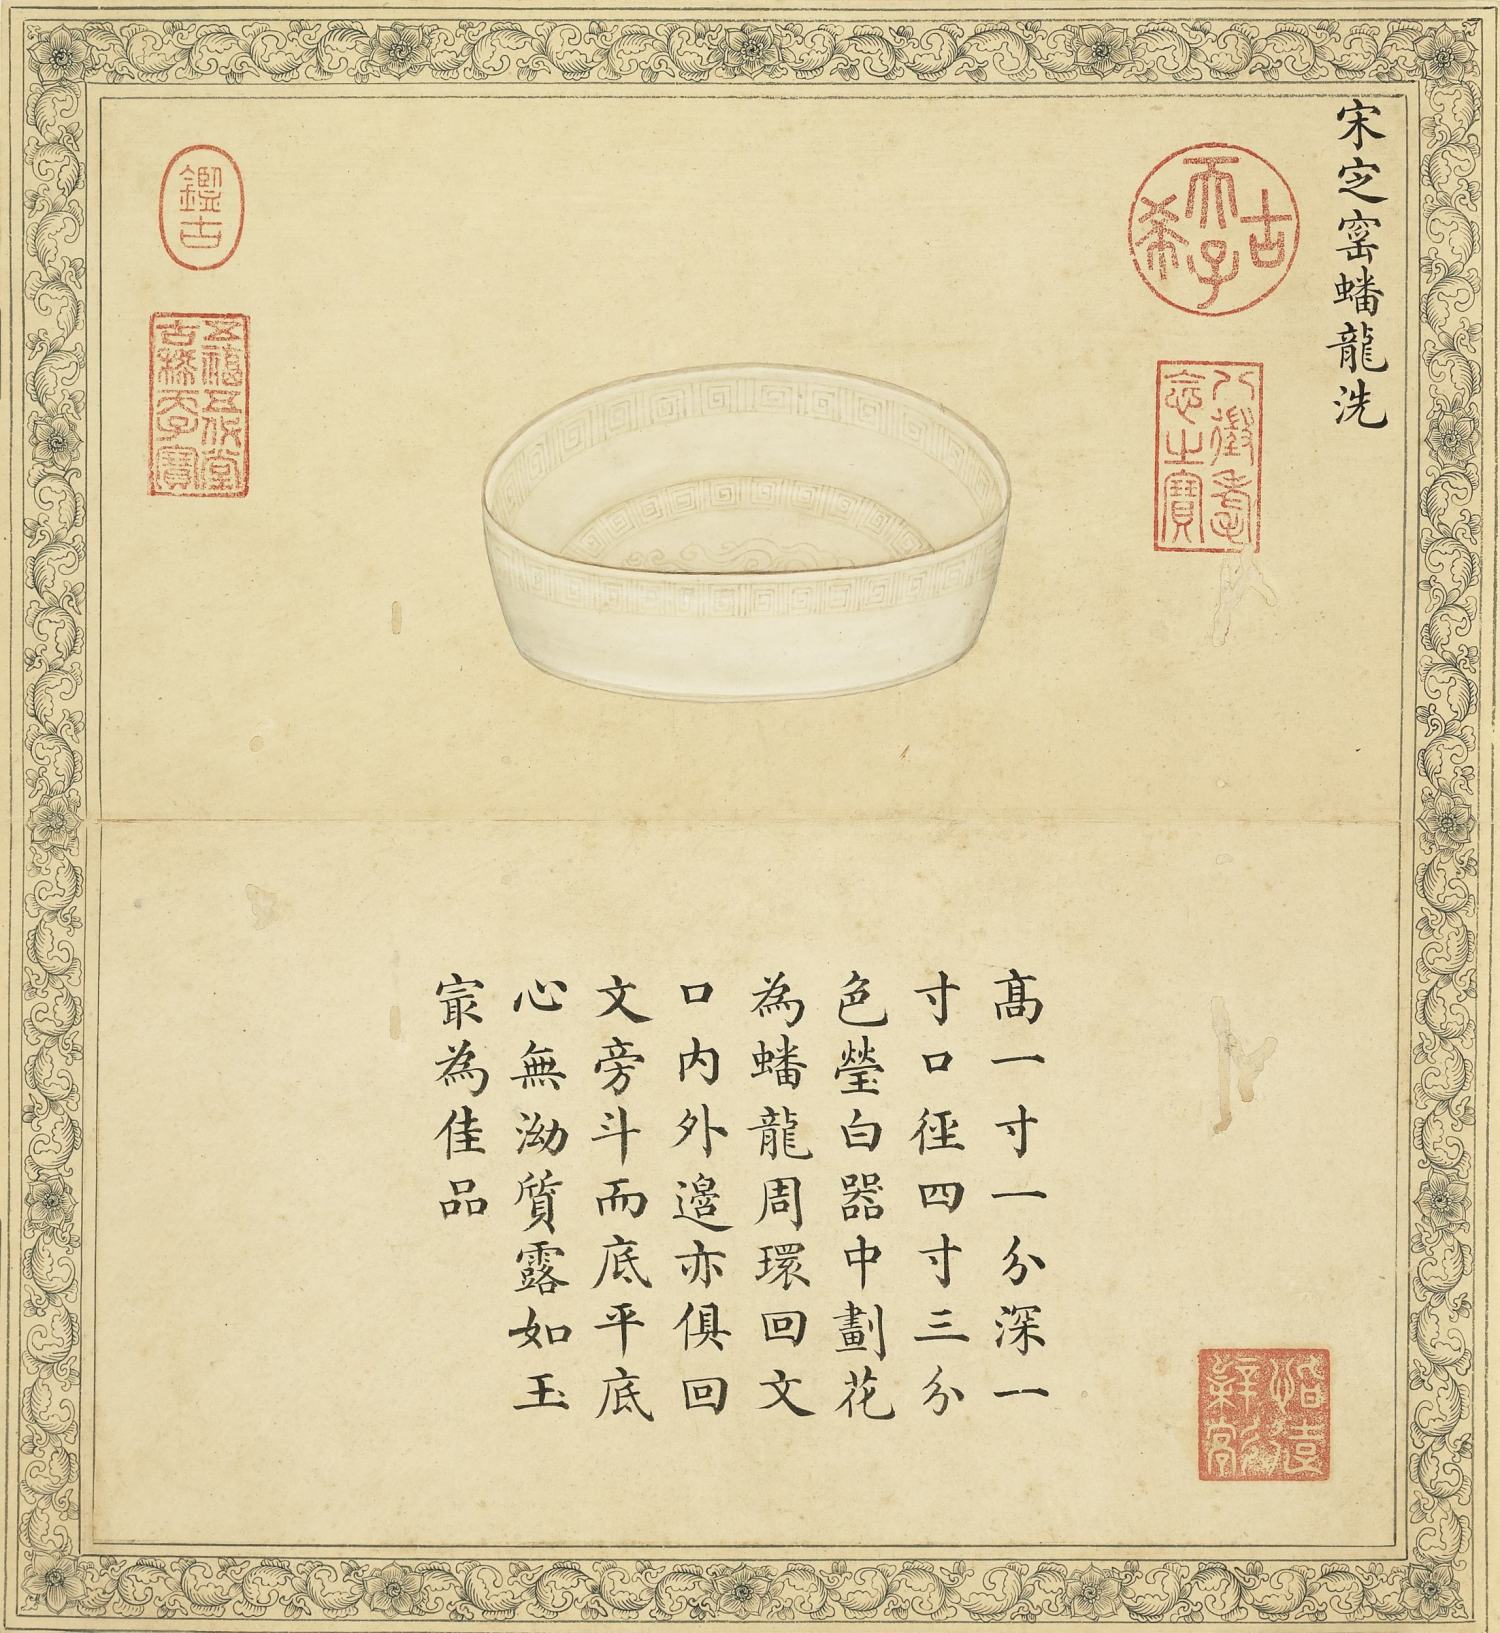 宋定窰蟠龍洗
古希天子
八徵耄念之寶
鑑古
五福五代堂古稀天子寶
高一寸一分深一
寸口徑四寸三分
色瑩白器中劃花
為蟠龍周環回文
口内外邊亦俱回
文旁斗而底平底
心無泑質露如玉
㝡為佳品